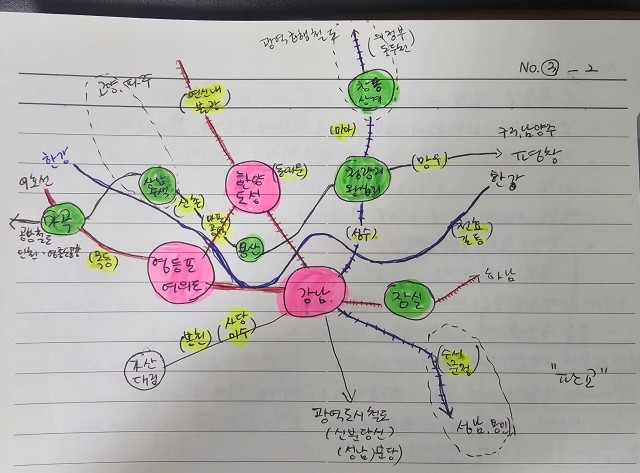 No. ③ - 2
광역급행철도
(의정부
동두천)
고양, 파주
창동
상계
(연신내
불광)
(미아)
구리,남양주
한강
상암
수색
한양
도성
(동대문)
청량리
왕십리
(망우)
한강
마곡
(신촌)
마포
공덕
용산
(성수)
(천호
길동)
공항철도
(목동)
영등포
여의도
강남
잠실
하남
(봉천)
(사당
이수)
가산
대림
(수서
문정)
광역도시철도
(신분당선)
(성남)분당
성남,용인